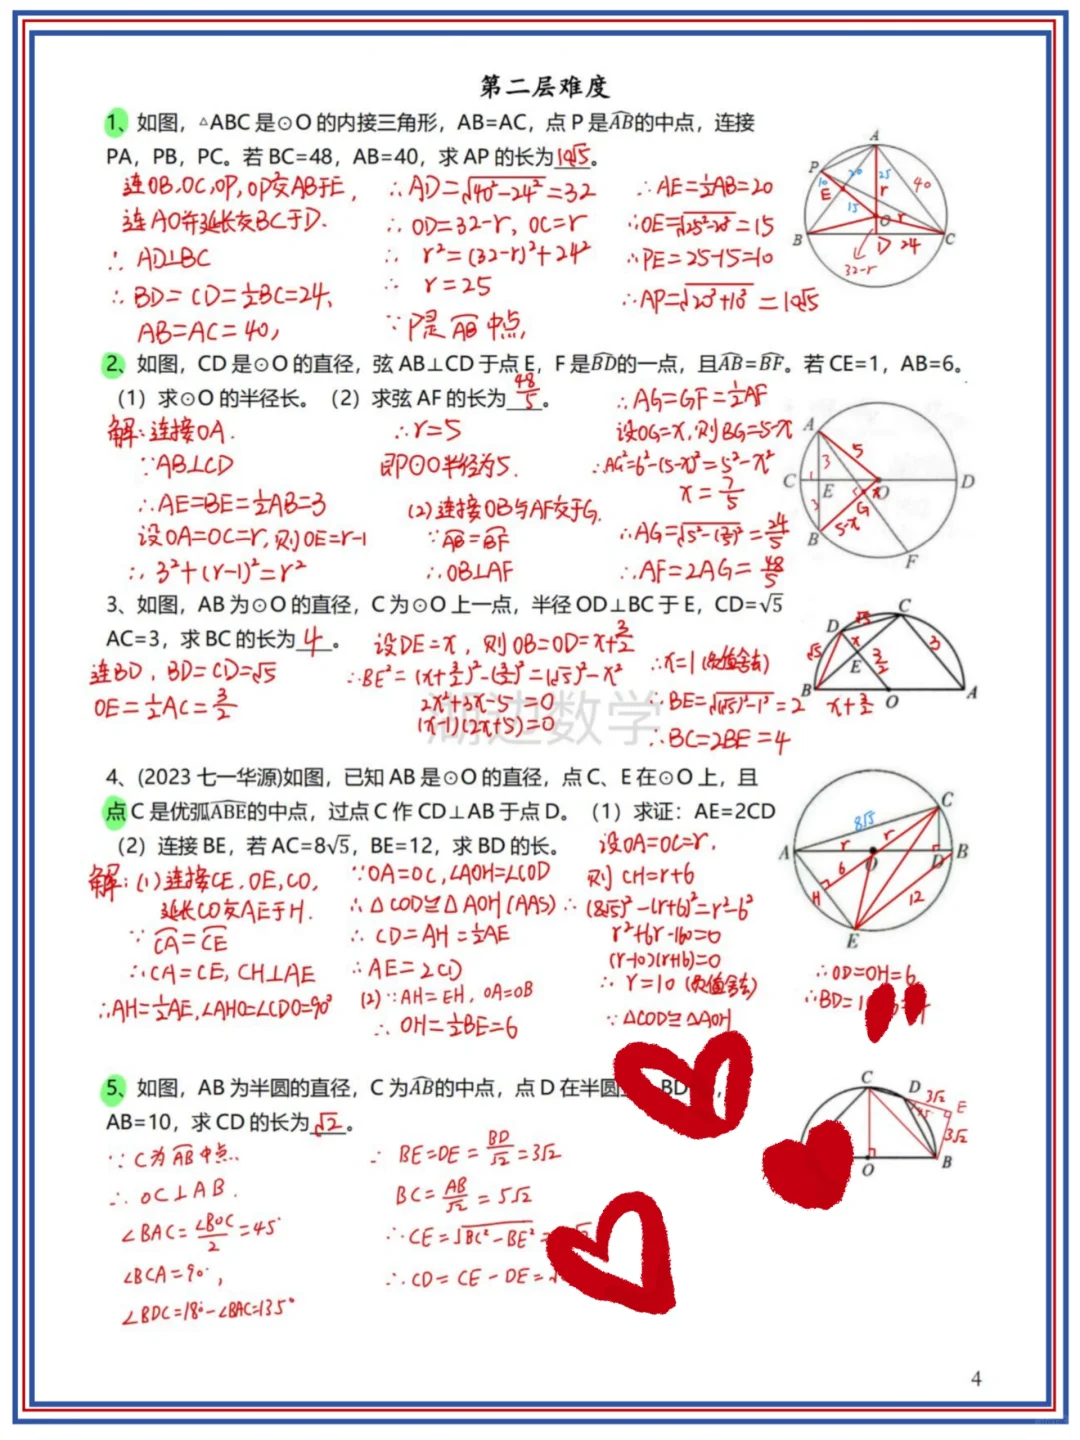 第二层难度
1、如图，△ABC是⊙O的内接三角形，AB=AC，点P是AB的中点，连接
PA，PB，PC。若BC=48，AB=40，求AP的长为10√5。
连OB,OC,OP,OP交AB于E,
连AO并延长交BC于D.
∴AD⊥BC
∴BD=CD=½BC=24,
AB=AC=40,
∴AD=√(40²-24²)=32
∴OD=32-r, OC=r
∴r²=(32-r)²+24²
∴r=25
∵P是AB中点,
∴AE=½AB=20
∴OE=√(25²-20²)=15
∴PE=25-15=10
∴AP=√(20²+10²)=10√5
A P B C O D E 20 25 40 10 15 r r 24 32-r
2、如图，CD是⊙O的直径，弦AB⊥CD于点E，F是BD的一点，且AB=BF。若CE=1，AB=6。
（1）求⊙O的半径长。（2）求弦AF的长为48/5。
解:连接OA.
∵AB⊥CD
∴AE=BE=½AB=3
设OA=OC=r,则OE=r-1
∴3²+(r-1)²=r²
∴r=5
即⊙O半径为5.
(2)连接OB与AF交于G.
∵AB=BF
∴OB⊥AF
∴AG=GF=½AF
设OG=x,则BG=5-x
∴AG²=6²-(5-x)²=5²-x²
x=7/5
∴AG=√(5²-(7/5)²)=24/5
∴AF=2AG=48/5
A C E O D B G F 5 3 1 3 x 5-x
3、如图，AB为⊙O的直径，C为⊙O上一点，半径OD⊥BC于E，CD=√5
AC=3，求BC的长为4。
连BD, BD=CD=√5
OE=½AC=3/2
设DE=x, 则OB=OD=x+3/2
∴BE²=(x+3/2)²-(3/2)²=(√5)²-x²
2x²+3x-5=0
(x-1)(2x+5)=0
∴x=1(负值舍去)
∴BE=√((√5)²-1²)=2
∴BC=2BE=4
D C E B O A √5 √5 x 3/2 3 x+3/2
湖边数学
4、(2023七一华源)如图，已知AB是⊙O的直径，点C、E在⊙O上，且
点C是优弧ABE的中点，过点C作CD⊥AB于点D。（1）求证：AE=2CD
（2）连接BE，若AC=8√5，BE=12，求BD的长。
解:(1)连接CE,OE,CO,
延长CO交AE于H.
∵CA=CE
∴CA=CE, CH⊥AE
∴AH=½AE,∠AHO=∠CDO=90°
∵OA=OC,∠AOH=∠COD
∴△COD≌△AOH(AAS)
∴CD=AH=½AE
∴AE=2CD
(2)∵AH=EH, OA=OB
∴OH=½BE=6
设OA=OC=r,
则CH=r+6
∴(8√5)²-(r+6)²=r²-6²
r²+6r-160=0
(r-10)(r+16)=0
∴r=10(负值舍去)
∵△COD≌△AOH
∴OD=OH=6
∴BD=1
A B C D E H O 8√5 r r 6 12
5、如图，AB为半圆的直径，C为AB的中点，点D在半圆 BD
AB=10，求CD的长为√2。
∵C为AB中点.
∴OC⊥AB.
∠BAC=∠BOC/2=45°
∠BCA=90°,
∠BDC=180°-∠BAC=135°
∴BE=DE=BD/√2=3√2
BC=AB/√2=5√2
∴CE=√(BC²-BE²)=
∴CD=CE-DE=
C D E O B 3√2 45° 3√2
4